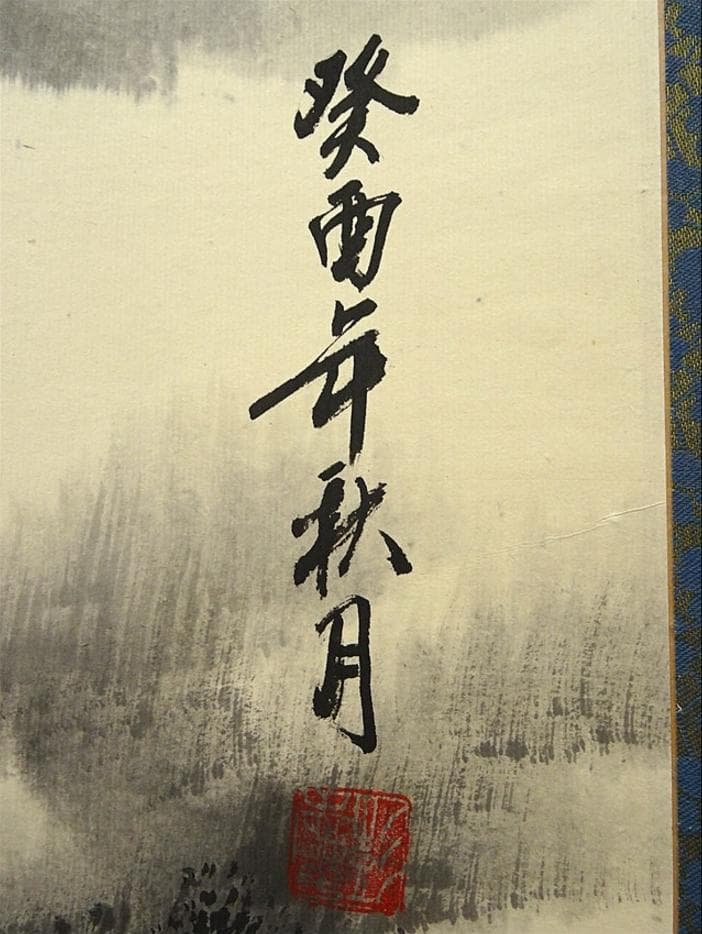 癸酉年秋月